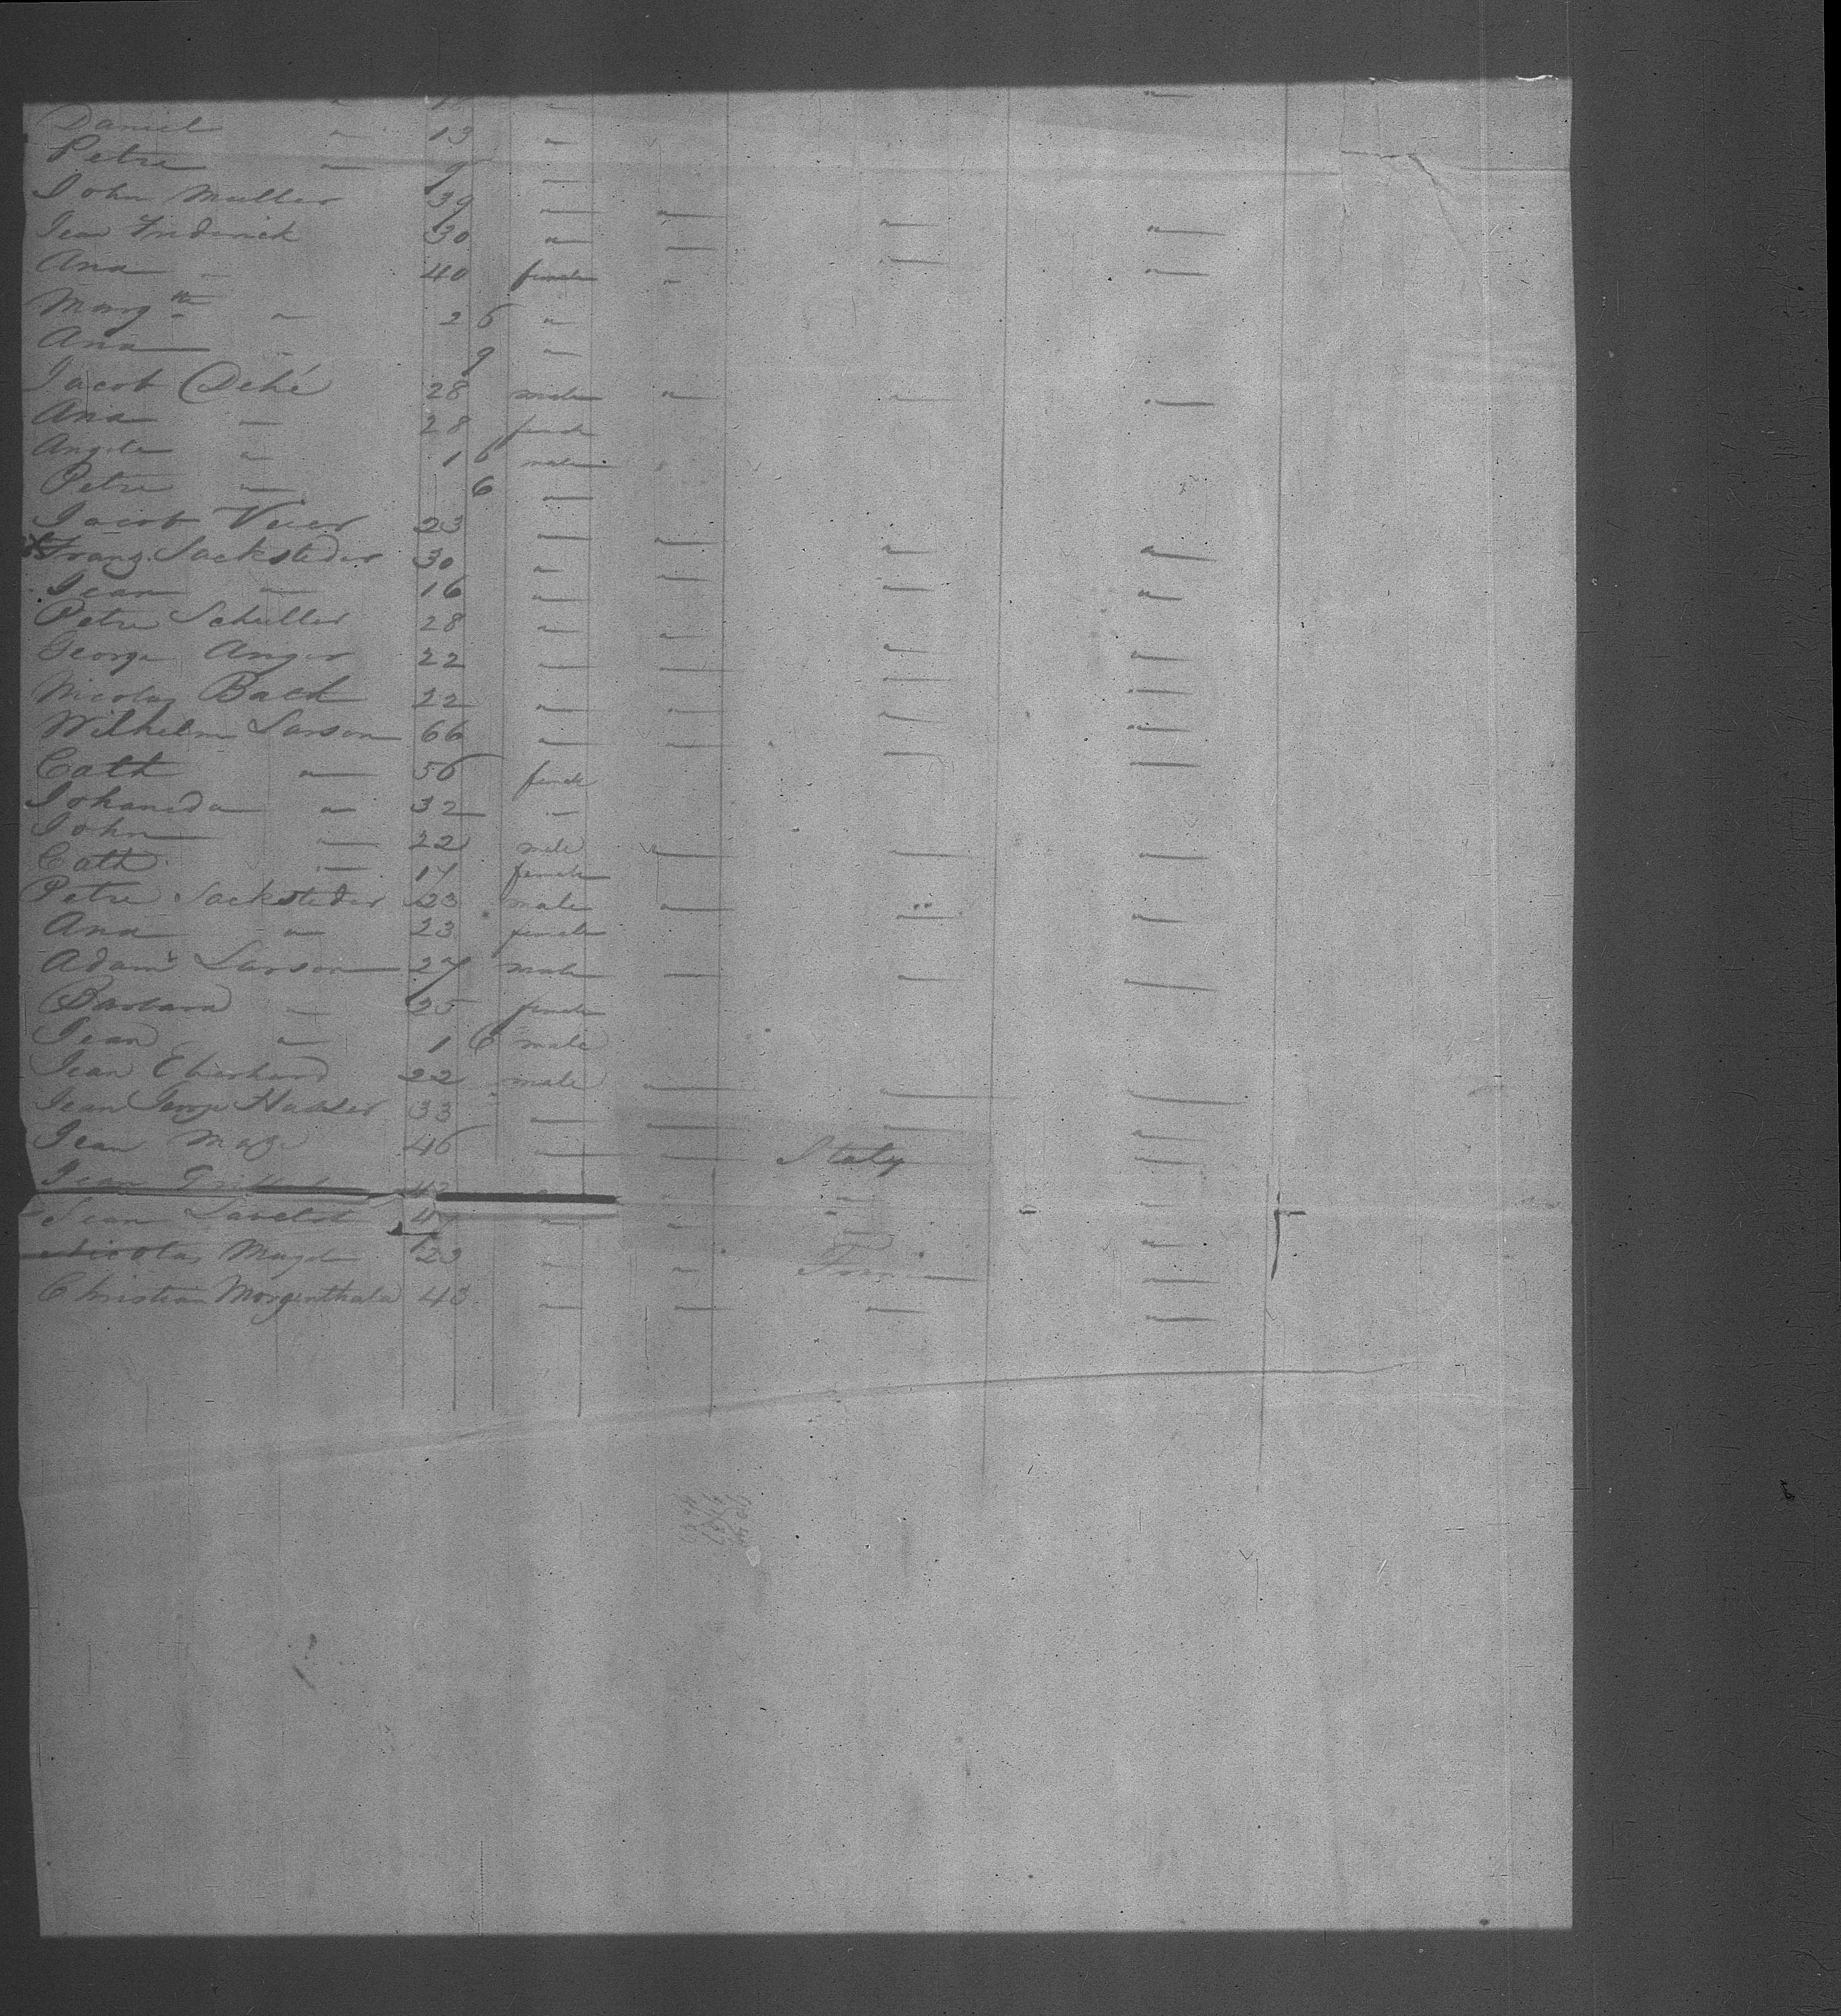 Daniel " 13 "
Petre " 9 "
John Muller 39 " " " "
Jean Frederick 30 " " " "
Ana " 40 female "
Marg " 2 6 "
Ana 9 "
Jacob Dehé 28 male " " "
Ana " 28 female
Angele " 1 6 male
Petre " 6 "
Jacob 23 " " " "
Franz Sacksteder 30 " " " "
Jean " 16 "
Petre Schuller 28 " " " "
George Anger 22 " " " "
Nicolas Back 22 " " " "
Wilhelm Larson 66 " " " "
Cath " 56 female
Johaneda " 32 "
John " 22 male " " "
Cath " 17 female
Petre Sacksteder 23 male " " "
Ana " 23 female
Adam Larson 27 male " " "
Barbara " 25 female
Jean " 1 6 male
Jean Eberhard 22 male " " "
Jean George 33 " " " "
Jean 46 " " Italy "
Jean " " "
Jean " " " "
Nicolas 23 " " "
Christian Morgenthala 43 " " " "